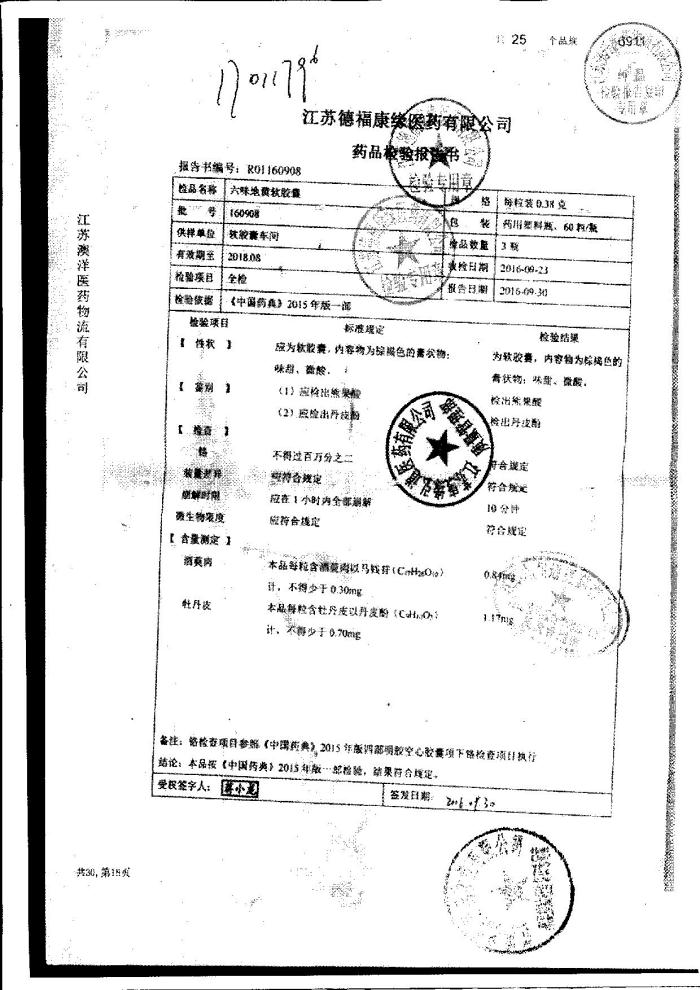 共 25 个品规
0911
17011796
江苏德福康缘医药有限公司
药品检验报告书
报告书编号：R01160908
检品名称 六味地黄软胶囊 规 格 每粒装0.38克
批 号 160908 包 装 药用塑料瓶，60粒/瓶
供样单位 软胶囊车间 检品数量 3瓶
有效期至 2018.08 收检日期 2016-09-23
检验项目 全检 报告日期 2016-09-30
检验依据 《中国药典》2015年版一部
检验项目 标准规定 检验结果
【 性状 】 应为软胶囊，内容物为棕褐色的膏状物； 为软胶囊，内容物为棕褐色的
味甜、微酸。 膏状物；味甜、微酸。
【 鉴别 】 （1）应检出熊果酸 检出熊果酸
（2）应检出丹皮酚 检出丹皮酚
【 检查 】
铬 不得过百万分之二 符合规定
装量差异 应符合规定 符合规定
崩解时限 应在1小时内全部崩解 10分钟
微生物限度 应符合规定 符合规定
【 含量测定 】
酒萸肉 本品每粒含酒萸肉以马钱苷（C₁₇H₂₆O₁₀） 0.84mg
计，不得少于0.30mg
牡丹皮 本品每粒含牡丹皮以丹皮酚（C₉H₁₀O₃） 1.17mg
计，不得少于0.70mg
备注：铬检查项目参照《中国药典》2015年版四部明胶空心胶囊项下铬检查项目执行
结论：本品按《中国药典》2015年版一部检验，结果符合规定。
受权签字人： 签发日期： 2016.09.30
江苏澳洋医药物流有限公司
共30, 第18页
检验专用章
医药有限公司
质量管理部